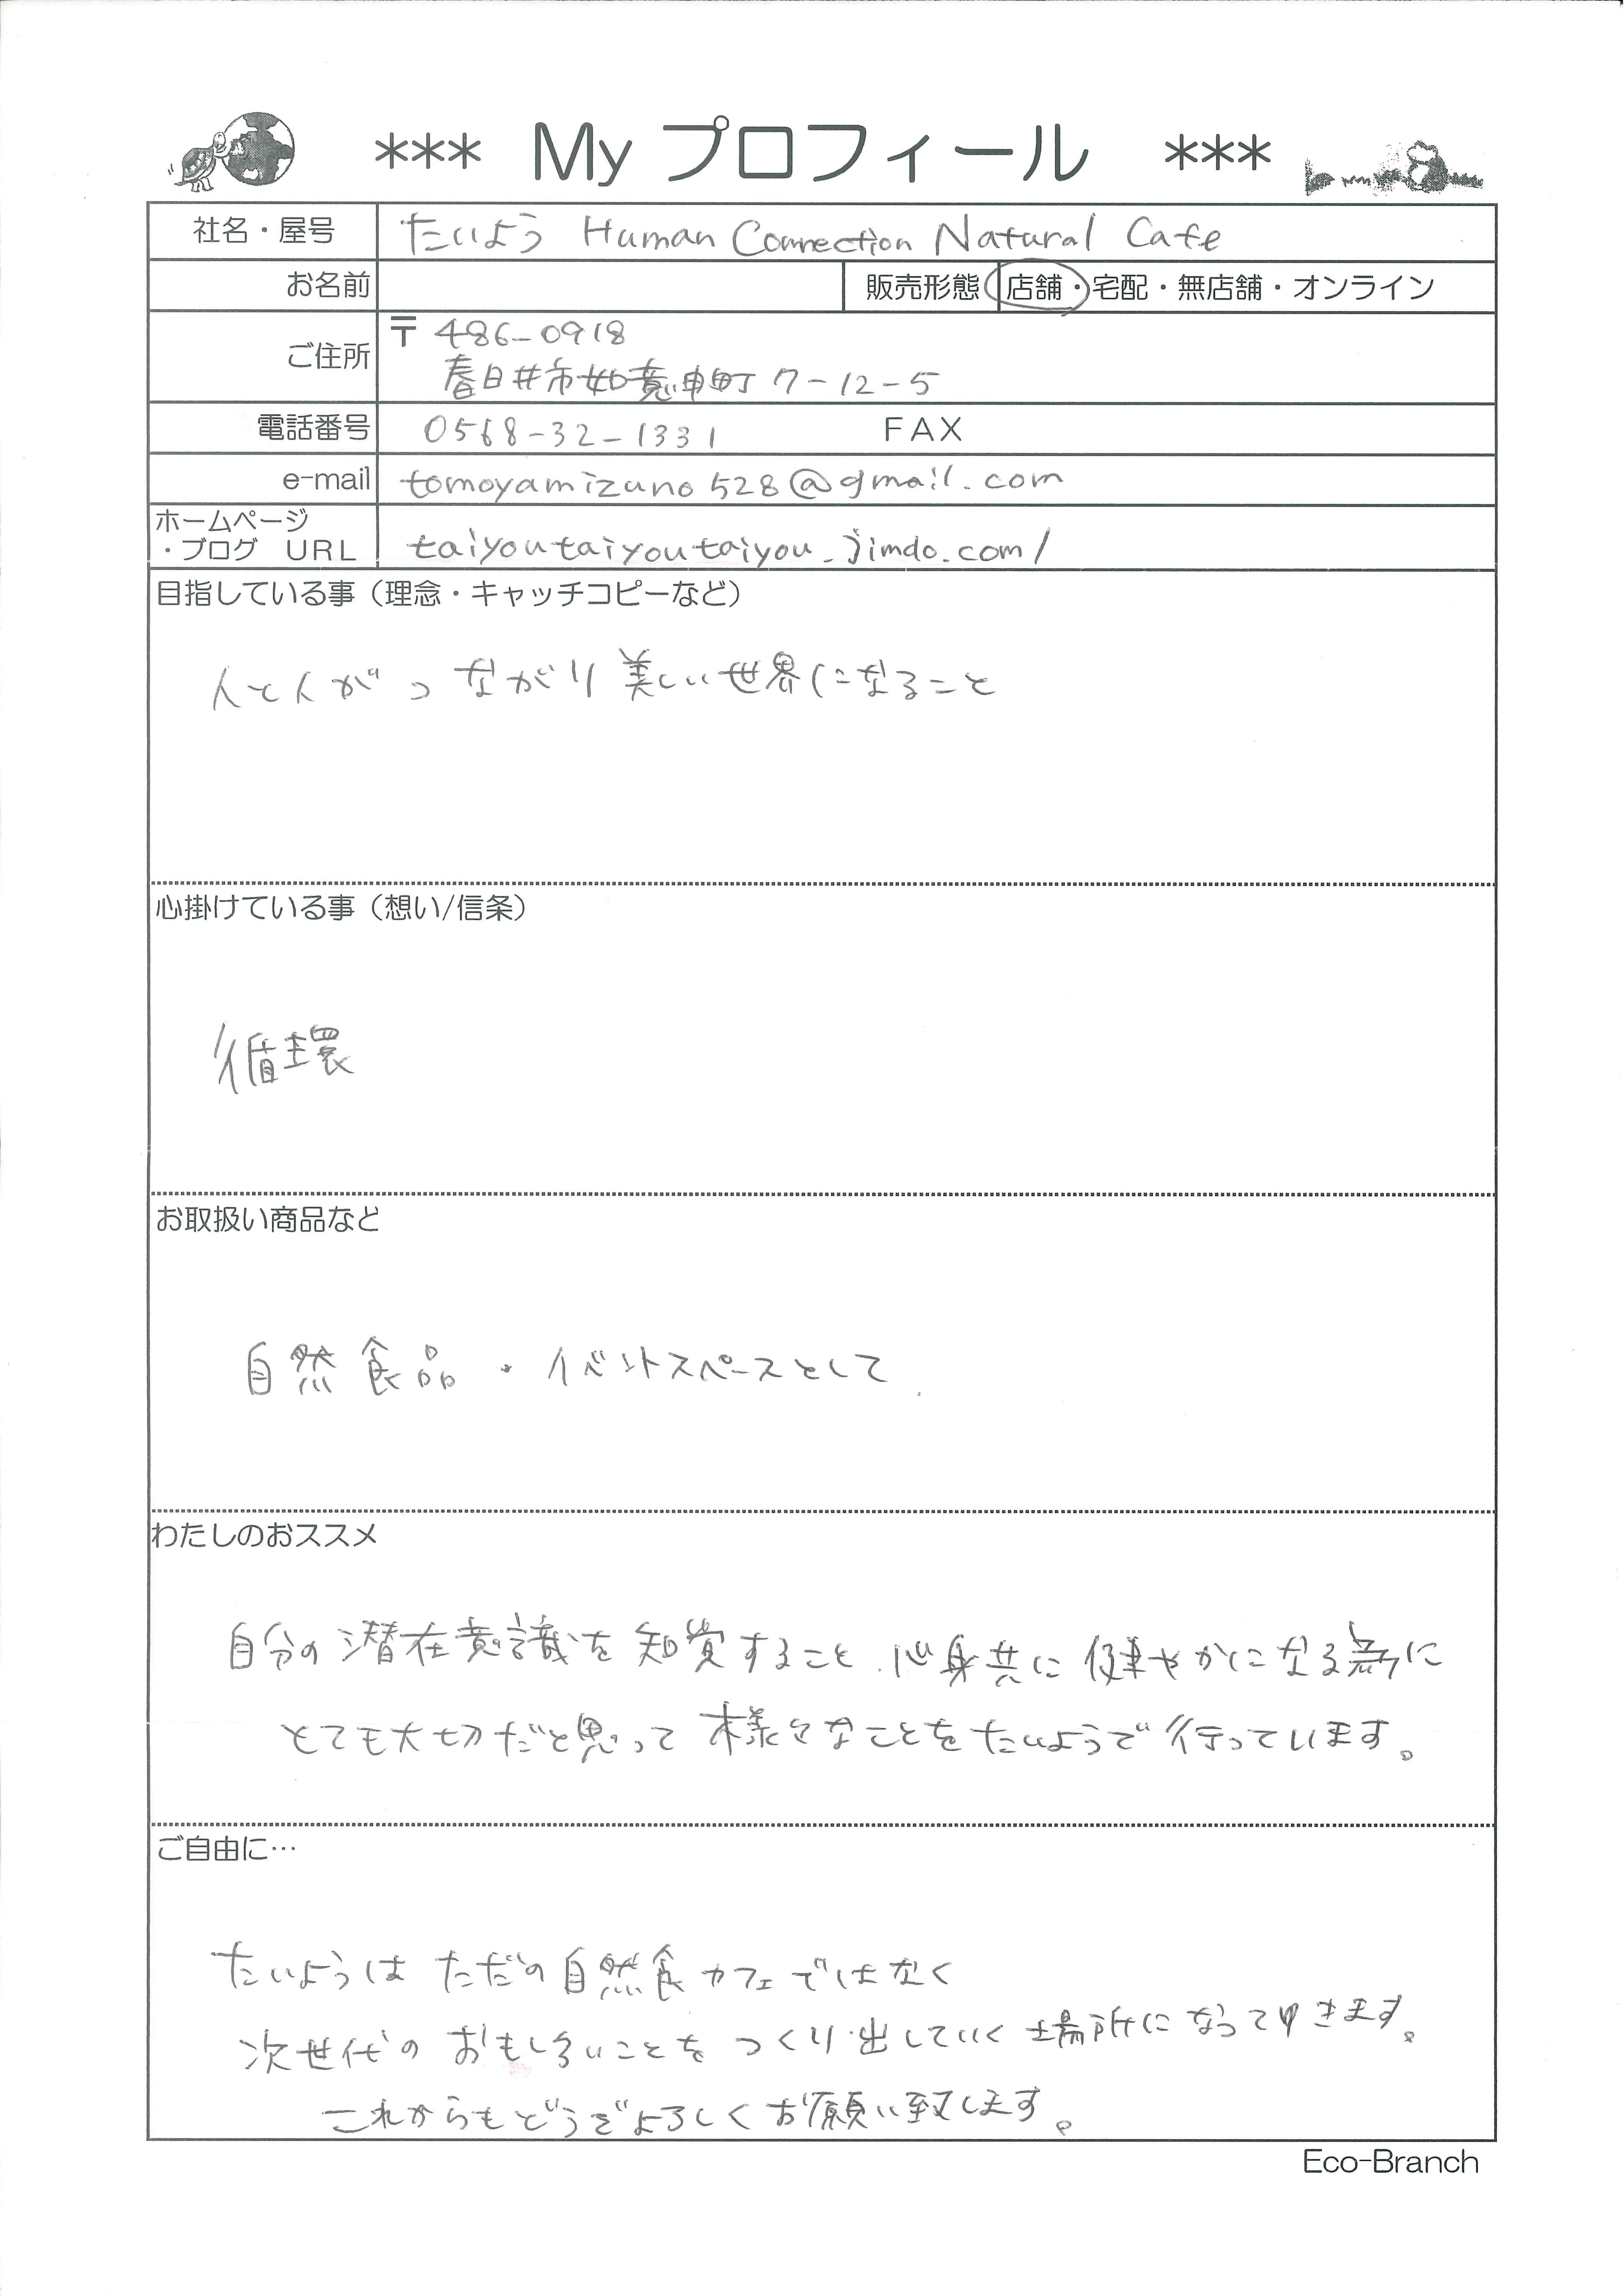 *** My プロフィール ***
社名・屋号 たいよう Human Connection Natural Cafe
お名前 販売形態 店舗・宅配・無店舗・オンライン
ご住所 〒 486-0918
春日井市如意申町 7-12-5
電話番号 0568-32-1331 FAX
e-mail tomoyamizuno528@gmail.com
ホームページ
・ブログ URL taiyoutaiyoutaiyou.jimdo.com/
目指している事（理念・キャッチコピーなど）
人と人がつながり美しい世界になること
心掛けている事（想い/信条）
循環
お取扱い商品など
自然食品・イベントスペースとして
わたしのおススメ
自分の潜在意識を知覚すること、心身共に健やかになる為に
とても大切だと思って様々なことをたいようで行っています。
ご自由に…
たいようはただの自然食カフェではなく
次世代のおもしろいことをつくり出していく場所になってゆきます。
これからもどうぞよろしくお願い致します。
Eco-Branch